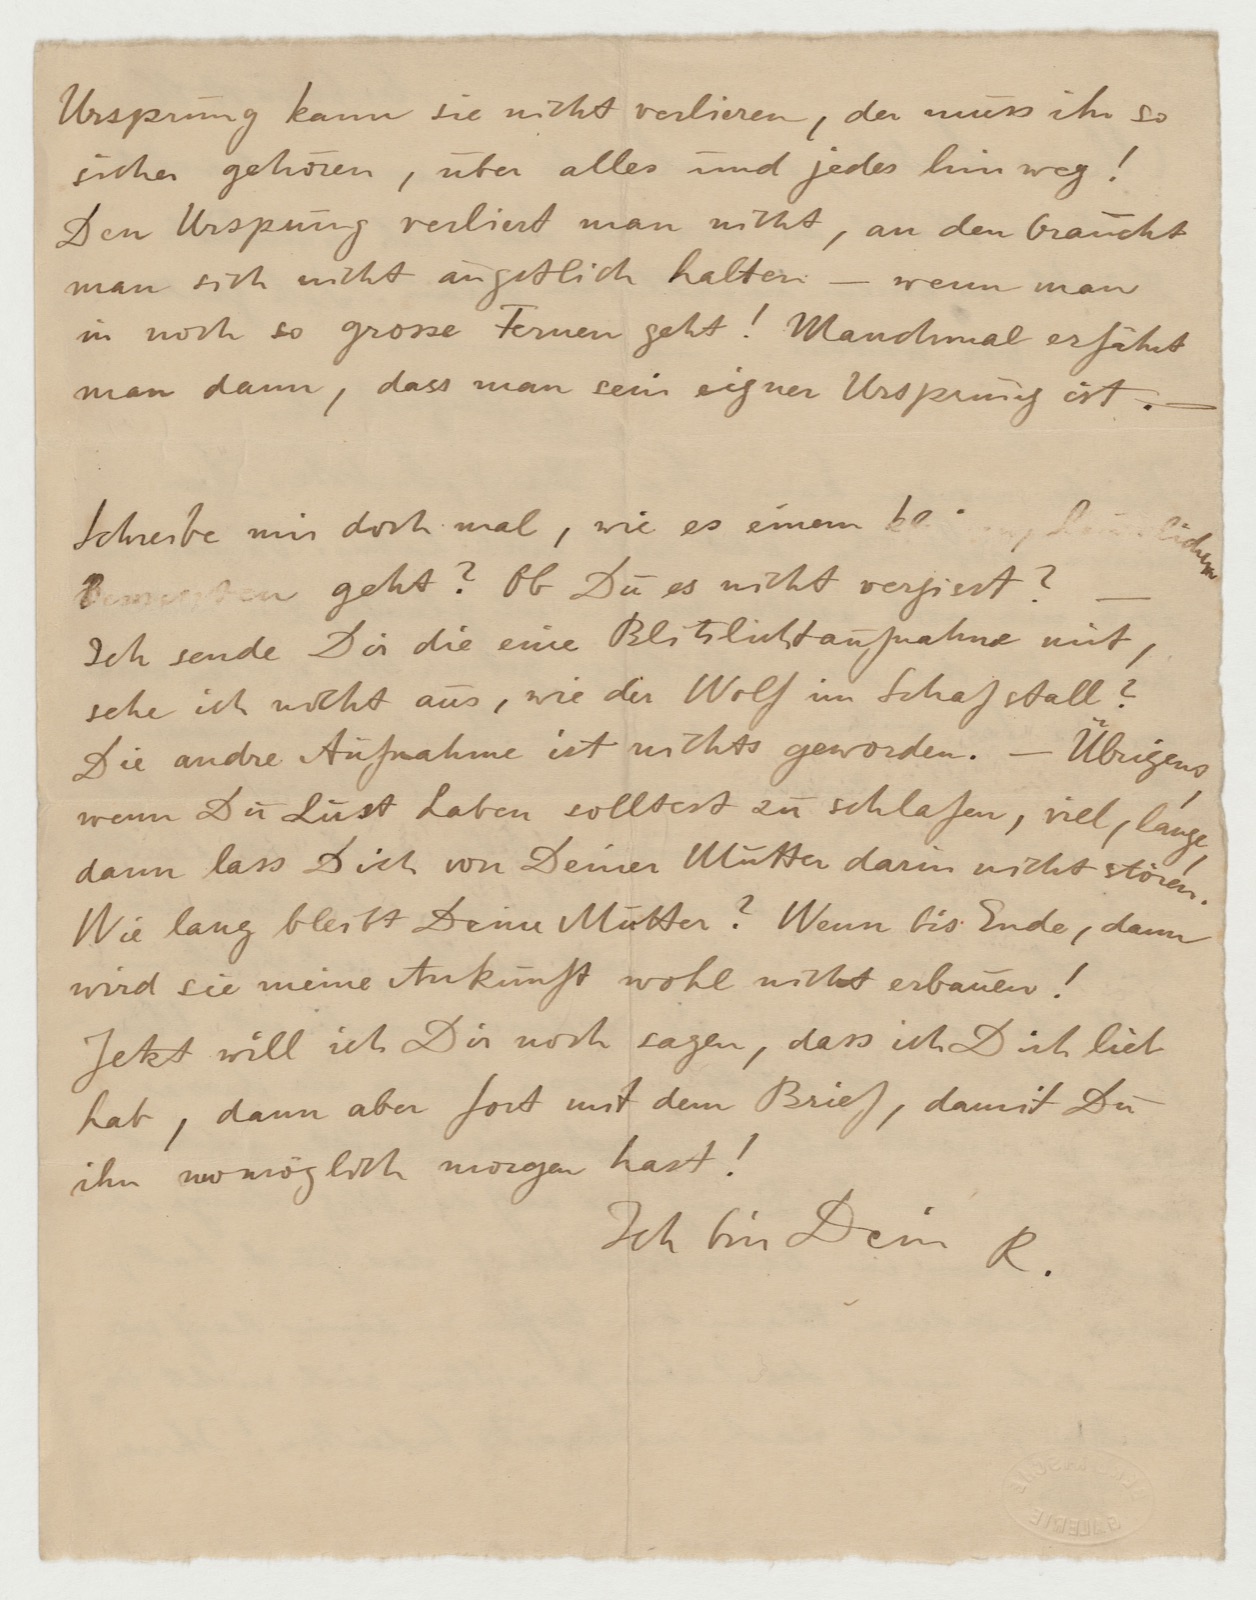 Ursprung kann sie nicht verlieren, der muss ihr so
sicher gehören, über alles und jedes hinweg!
Den Urspung verliert man nicht, an den braucht
man sich nicht ängstlich halten — wenn man
in noch so grosse Fernen geht! Manchmal erfährt
man dann, dass man sein eigner Ursprung ist. —
Schreibe mir doch mal, wie es einem
geht? Ob Du es nicht vergisst? —
Ich sende Dir die eine Blitzlichtaufnahme mit,
sehe ich nicht aus, wie der Wolf im Schafstall?
Die andre Aufnahme ist nichts geworden. — Übrigens,
wenn Du Lust haben solltest zu schlafen, viel, lange,
dann lass Dich von Deiner Mutter darin nicht stören.
Wie lang bleibt Deine Mutter? Wenn bis Ende, dann
wird sie meine Ankunft wohl nicht erbauen!
Jetzt will ich Dir noch sagen, dass ich Dich lieb
hab, dann aber fort mit dem Brief, damit Du
ihn womöglich morgen hast!
Ich bin Dein R.
GALERIE